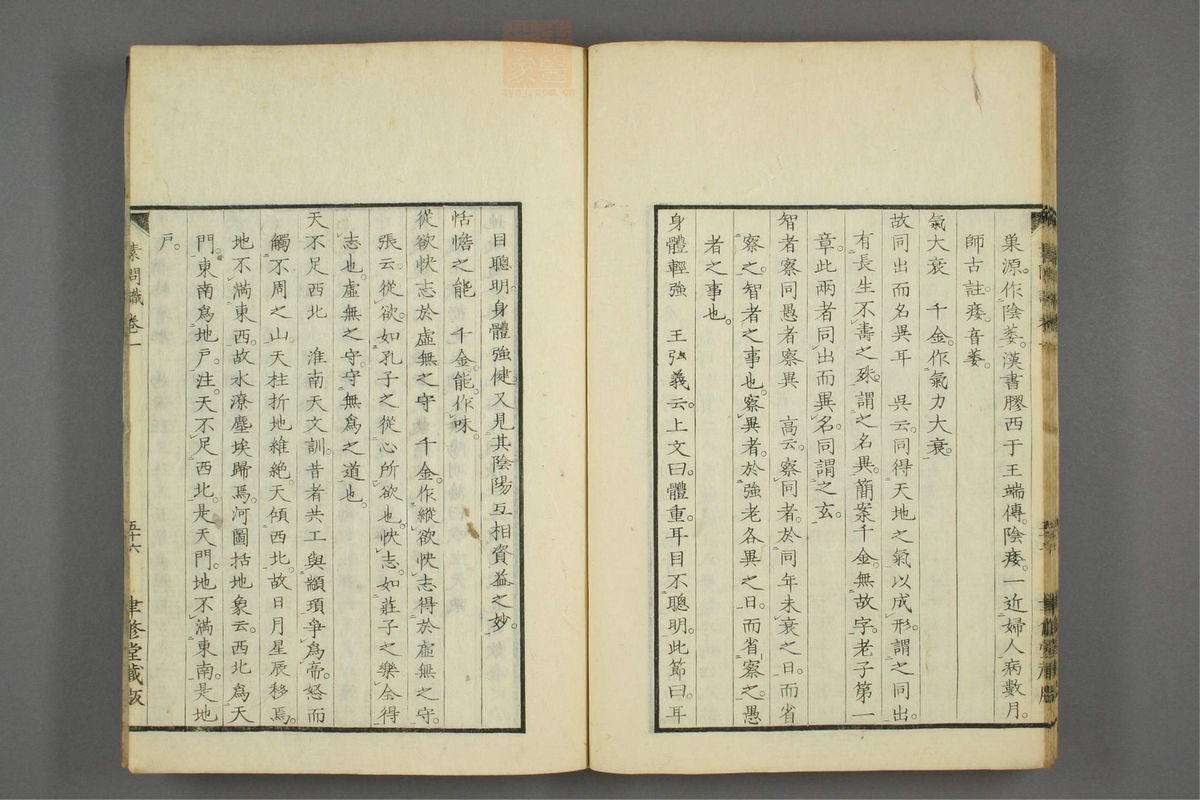 巢源作陰萎漢書膠西于王端傳陰痿一近婦人病數月
師古註痿音萎
氣大衰　千金作氣力大衰
故同出而名異耳　吳云同得天地之氣以成形謂之同出
有長生不壽之殊謂之名異簡案千金無故字老子第一
章此兩者同出而異名同謂之玄
智者察同愚者察異　高云察同者於同年未衰之日而省
察之智者之事也察異者於強老各異之日而省察之愚
者之事也
身體輕強　王弘義云上文曰體重耳目不聰明此節曰耳
目聰明身體強健又見其陰陽互相資益之妙
恬憺之能　千金能作味
從欲快志於虛無之守　千金作縱欲快志得於虛無之守
張云從欲如孔子之從心所欲也快志如莊子之樂全得
志也虛無之守守無爲之道也
天不足西北　淮南天文訓昔者共工與顓頊爭爲帝怒而
觸不周之山天柱折地維絶天傾西北故日月星辰移焉
地不滿東西故水潦塵埃歸焉河圖括地象云西北爲天
門東南爲地戶注天不足西北是天門地不滿東南是地
戶
素問識卷一
五十六
聿修堂藏版